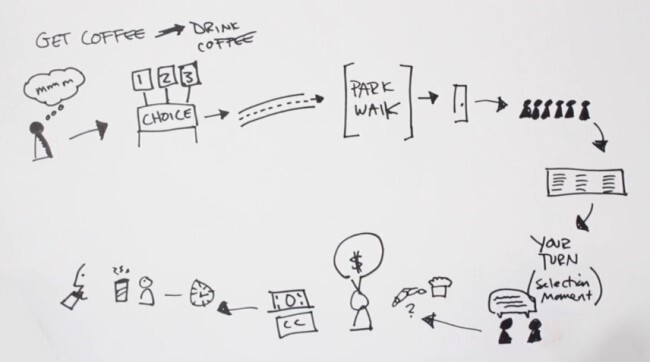 GET COFFEE → DRINK
COFFEE
mmm
1 2 3
CHOICE
PARK
WALK
YOUR
TURN
(Selection
moment)
?
$
CC